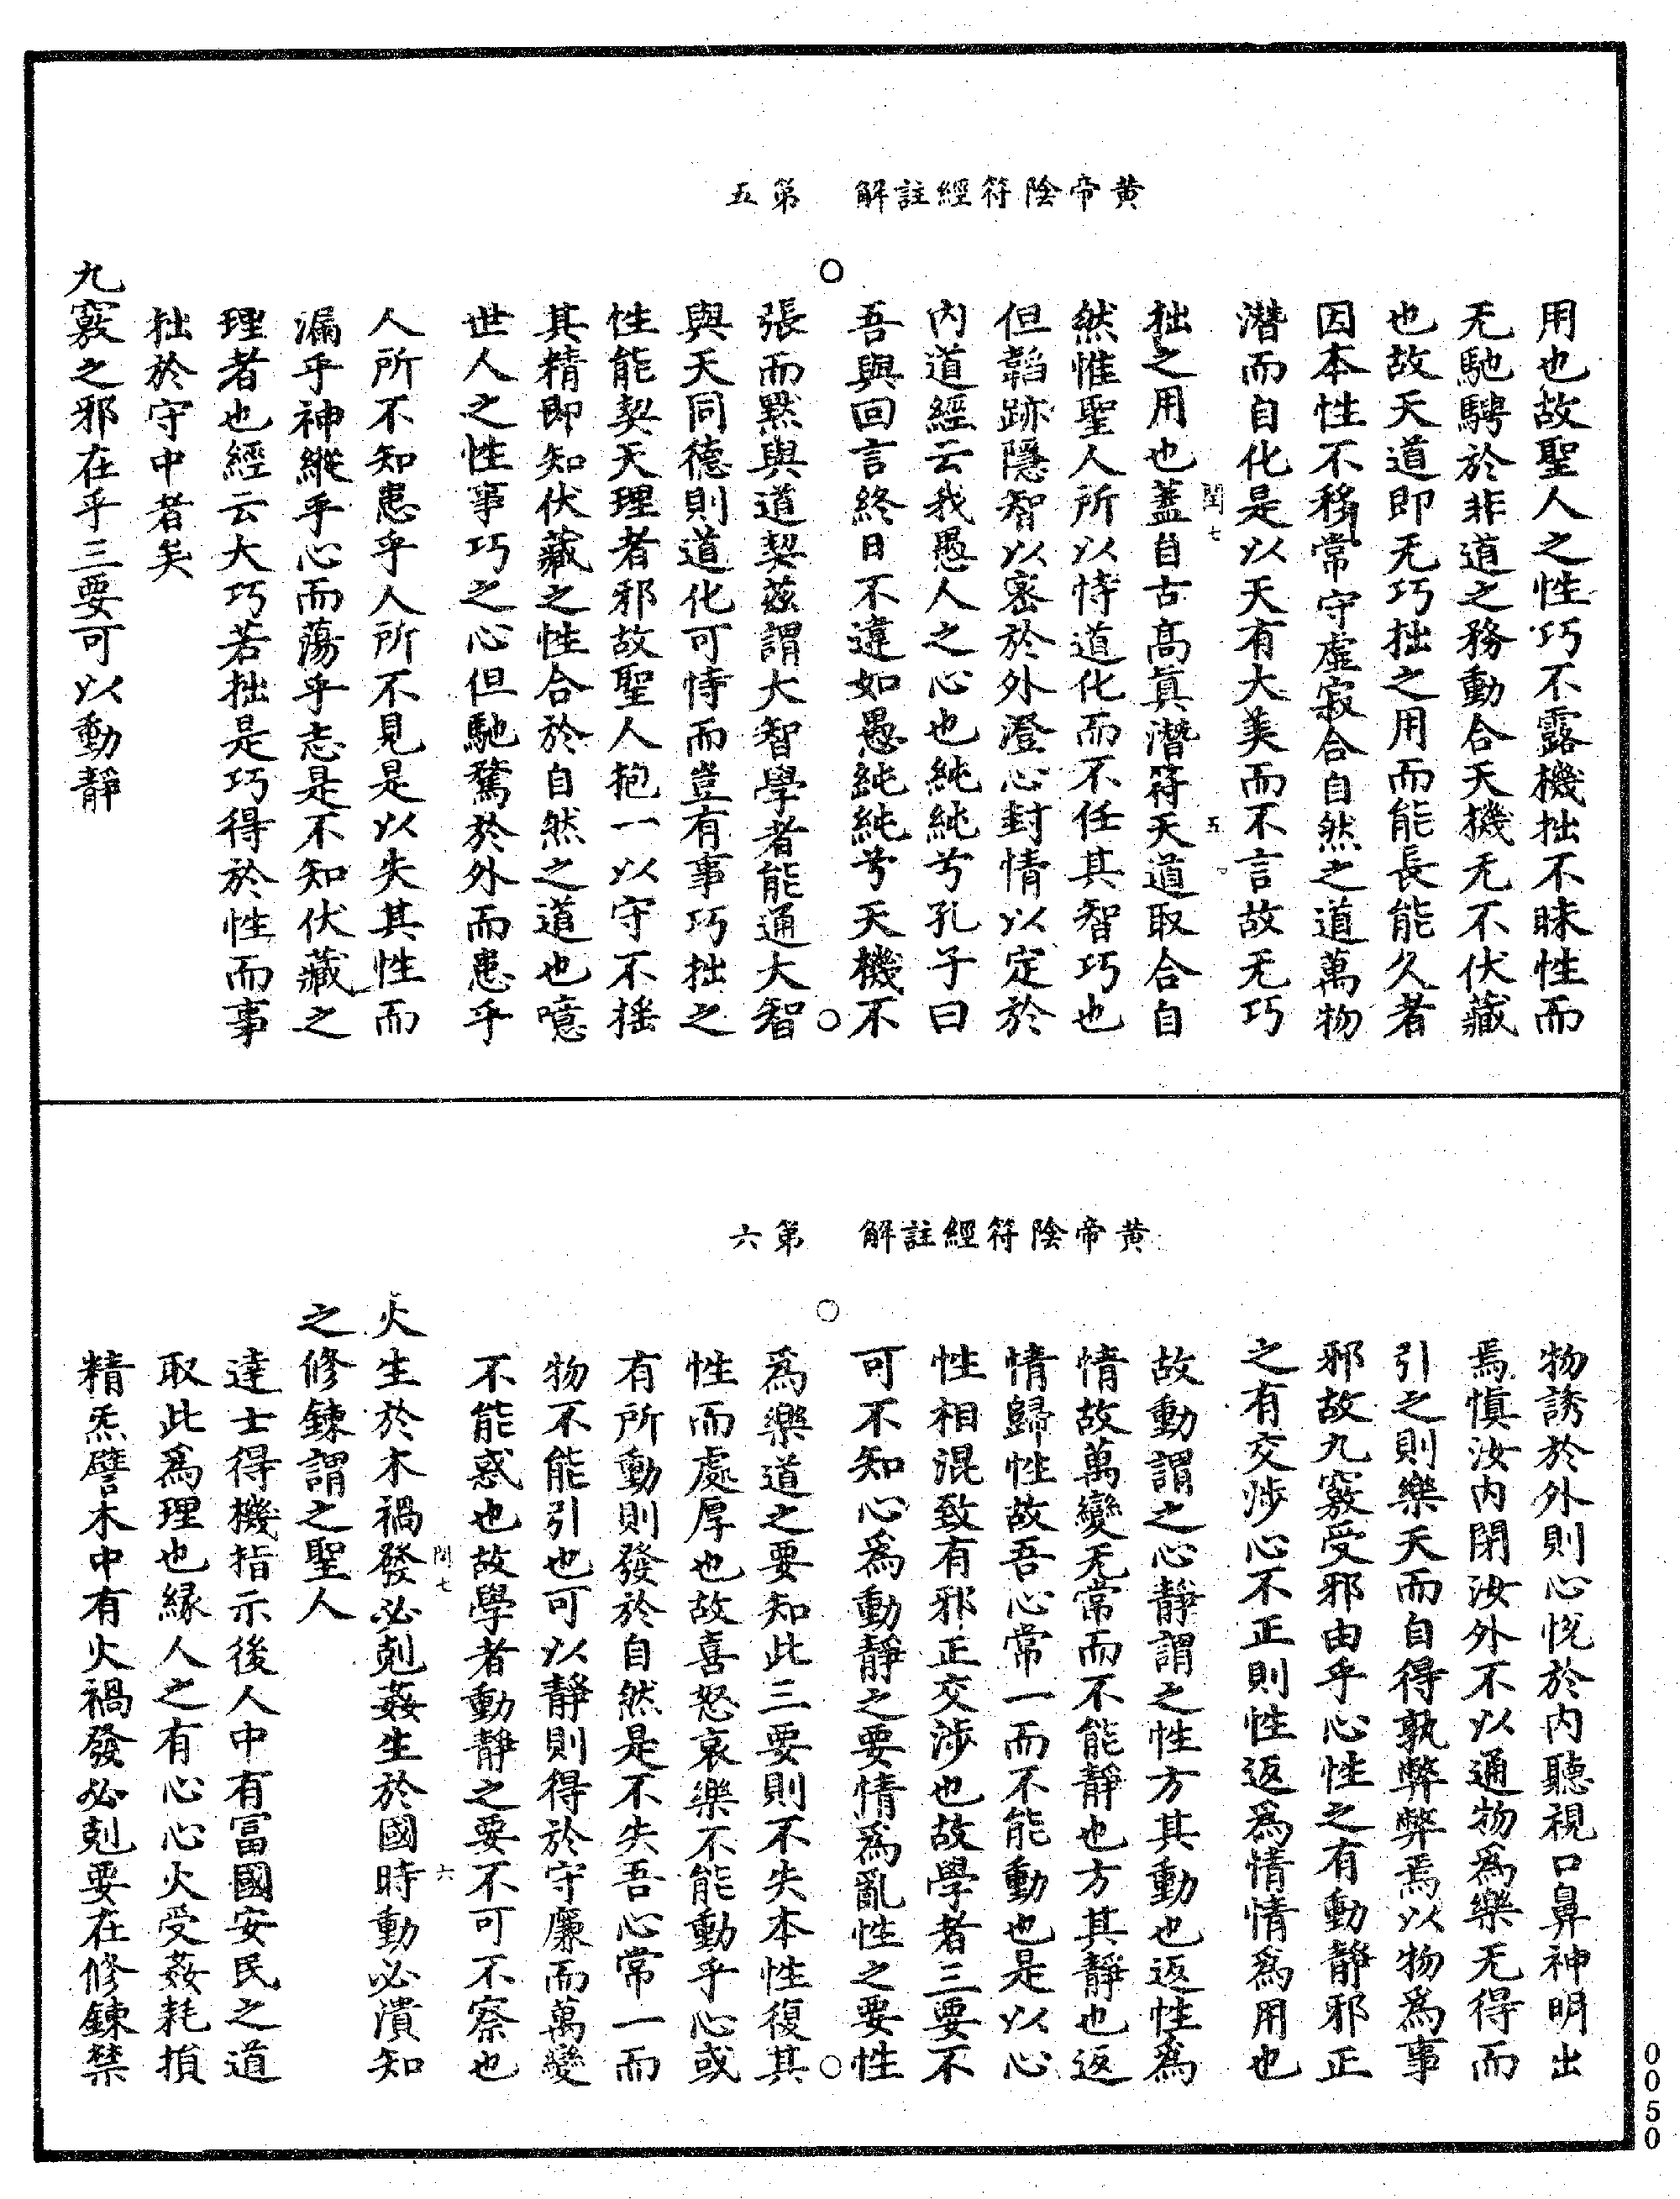 黄帝陰符經註解　第五
用也故聖人之性巧不露機拙不昧性而
无馳騁於非道之務動合天機无不伏藏
也故天道即无巧拙之用而能長能久者
因本性不移常守虛寂合自然之道萬物
潛而自化是以天有大美而不言故无巧
閏七　五
拙之用也蓋自古高真潛符天道取合自
然惟聖人所以恃道化而不任其智巧也
但韜跡隱智以密於外澄心封情以定於
內道經云我愚人之心也純純兮孔子曰
吾與回言終日不違如愚純純兮天機不
張而默與道契茲謂大智學者能通大智
與天同德則道化可恃而豈有事巧拙之
性能契天理者邪故聖人抱一以守不搖
其精即知伏藏之性合於自然之道也噫
世人之性事巧之心但馳騖於外而患乎
人所不知患乎人所不見是以失其性而
漏乎神縱乎心而蕩乎志是不知伏藏之
理者也經云大巧若拙是巧得於性而事
拙於守中者矣
九竅之邪在乎三要可以動靜
黄帝陰符經註解　第六
物誘於外則心悅於內聽視口鼻神明出
焉慎汝內閉汝外不以通物為樂无得而
引之則樂天而自得孰弊弊焉以物為事
邪故九竅受邪由乎心性之有動靜邪正
之有交涉心不正則性返為情情為用也
故動謂之心靜謂之性方其動也返性為
情故萬變无常而不能靜也方其靜也返
情歸性故吾心常一而不能動也是以心
性相混致有邪正交涉也故學者三要不
可不知心為動靜之要情為亂性之要性
為樂道之要知此三要則不失本性復其
性而處厚也故喜怒哀樂不能動乎心或
有所動則發於自然是不失吾心常一而
物不能引也可以靜則得於守廉而萬變
不能惑也故學者動靜之要不可不察也
閏七　六
火生於木禍發必剋姦生於國時動必潰知
之修鍊謂之聖人
達士得機指示後人中有富國安民之道
取此為理也緣人之有心心火受姦耗損
精炁譬木中有火禍發必剋要在修鍊禁
0050